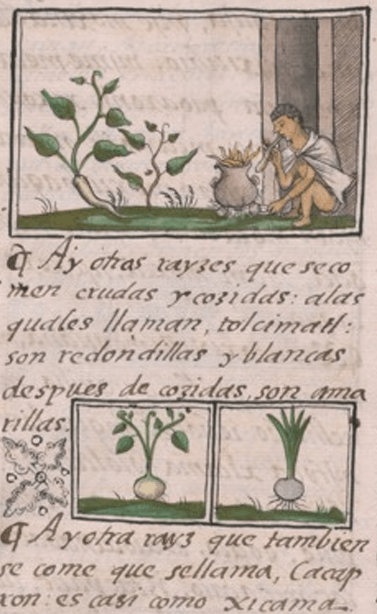 ¶ Ay otras rayzes que seco
men crudas y cozidas: alas
quales llaman, tolcimatl:
son redondillas y blancas
despues de cozidas, son ama
rillas.
¶ Ay otra rayz que tambien
se come que sellama, Cacap
xon: es casi como xicama.